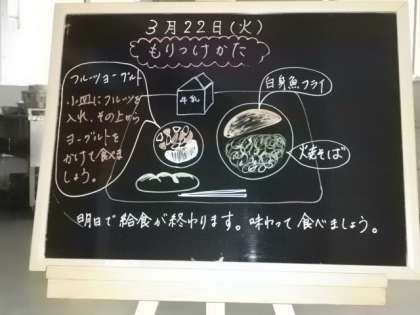 3月22日(火)
もりつけかた
フルーツヨーグルト
小皿にフルーツを
入れ、その上から
ヨーグルトを
かけて食べま
しょう。
牛乳
白身魚フライ
焼そば
明日で給食が終わります。味わって食べましょう。